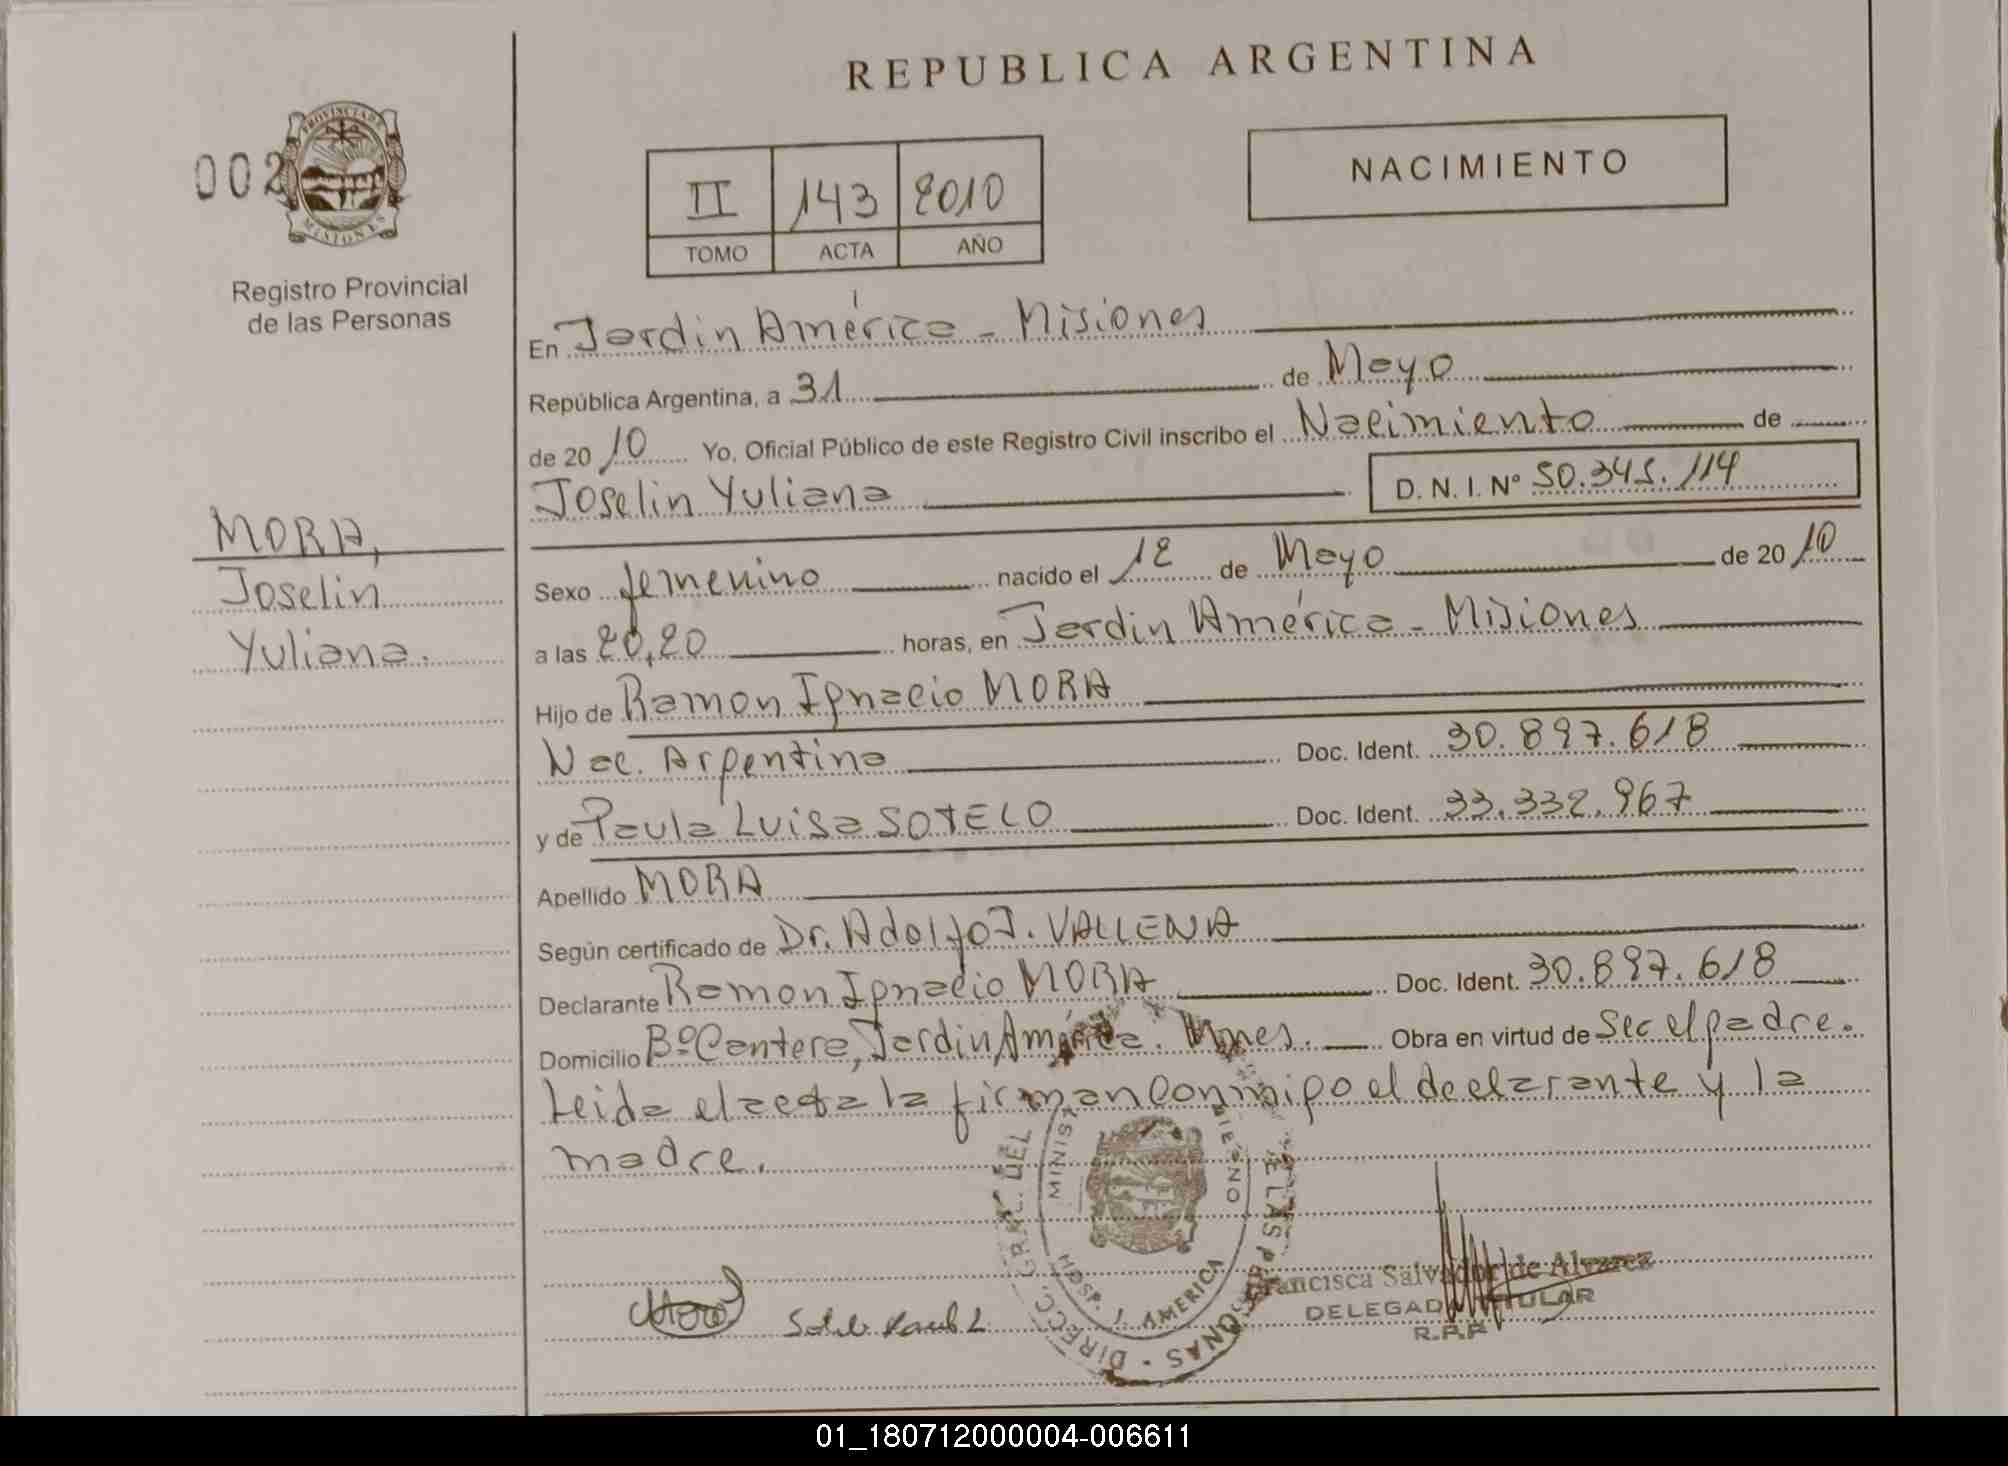 REPUBLICA ARGENTINA
002
PROVINCIA DE
MISIONES
Registro Provincial
de las Personas
II 143 2010
TOMO ACTA AÑO
NACIMIENTO
MORA,
Joselin
Yuliana.
En Jardin América - Misiones
República Argentina, a 31 de Mayo
de 20 10 Yo, Oficial Público de este Registro Civil inscribo el Nacimiento de
Joselin Yuliana D. N. I. Nº 50.345.114
Sexo femenino nacido el 12 de Mayo de 20 10
a las 20,20 horas, en Jardin América - Misiones
Hijo de Ramon Ignacio MORA
Nac. Argentina Doc. Ident. 30.897.618
y de Paula Luisa SOTELO Doc. Ident. 33.332.967
Apellido MORA
Según certificado de Dr. Adolfo J. VALLENA
Declarante Ramon Ignacio MORA Doc. Ident. 30.897.618
Domicilio Bº Cantera, Jardin América. Mnes. Obra en virtud de Ser el padre.
Leida el acta la firman conmigo el declarante y la
madre.
DIRECC. GRAL. DEL
HOSP. J. AMERICA
Francisca Salvador de Alvarez
DELEGADA TITULAR
R.P.P
01_180712000004-006611